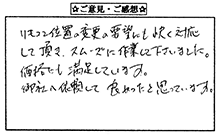 ☆ご意見・ご感想☆
リモコン位置の変更の要望にも快く対応
して頂き、スムーズに作業して下さいました。
価格にも満足しています。
御社へ依頼して良かったと思っています。